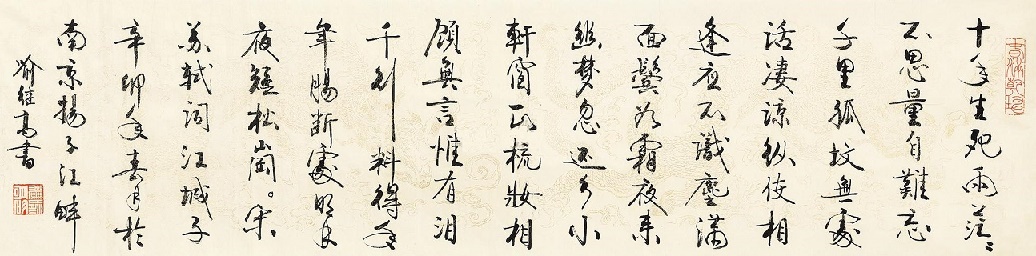 十年生死兩茫〻
不思量自難忘
千里孤墳無處
話凄涼縱使相
逢應不識塵滿
面鬢如霜夜來
幽夢忽還鄉小
軒窗正梳妝相
顧無言惟有泪
千行料得年
年腸斷處明月
夜短松崗。宋
苏軾詞江城子
辛卯年春月於
南京揚子江畔
喻继高書